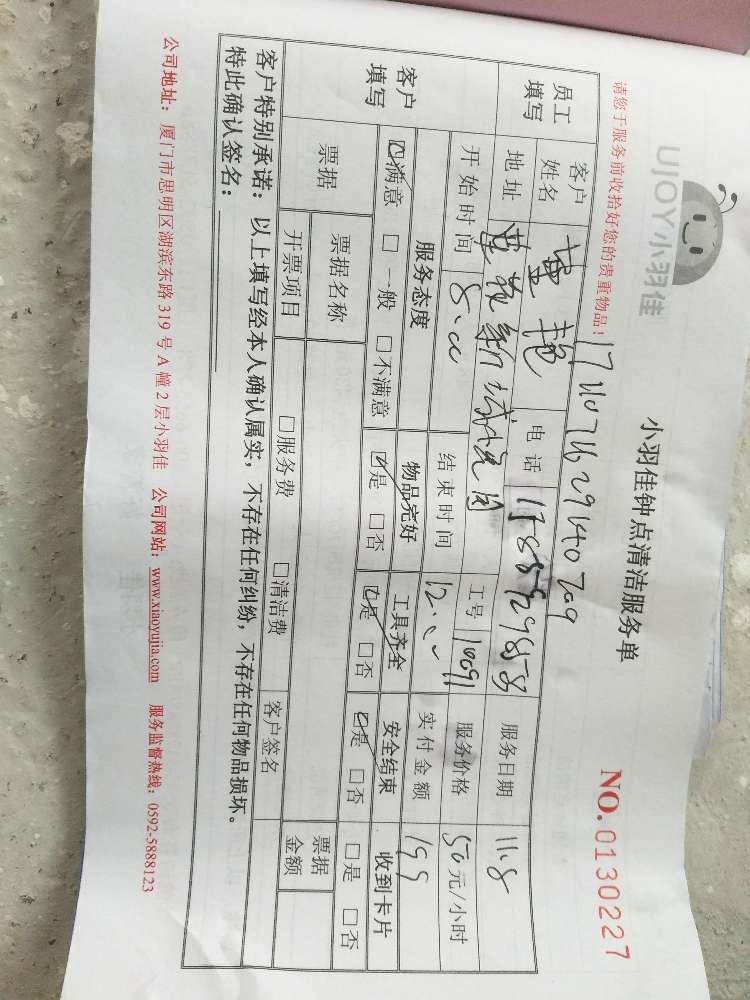 UJOY小羽佳
小羽佳钟点清洁服务单
NO.0130227
请您于服务前收拾好您的贵重物品！
员工填写
客户姓名
电话
服务日期 11.8
地址
工号 10091
服务价格 50元/小时
开始时间 8:00
结束时间 12:00
实付金额 199
客户填写
服务态度 物品完好 工具齐全 安全结束 收到卡片
☑满意 □一般 □不满意 ☑是 □否 ☑是 □否 ☑是 □否 □是 □否
票据 票据名称 票据金额
开票项目 □服务费 □清洁费 客户签名
客户特别承诺：以上填写经本人确认属实，不存在任何纠纷，不存在任何物品损坏。
特此确认签名：
公司地址：厦门市思明区湖滨东路319号A幢2层小羽佳 公司网站：www.xiaoyujia.com 服务监督热线：0592-5888123